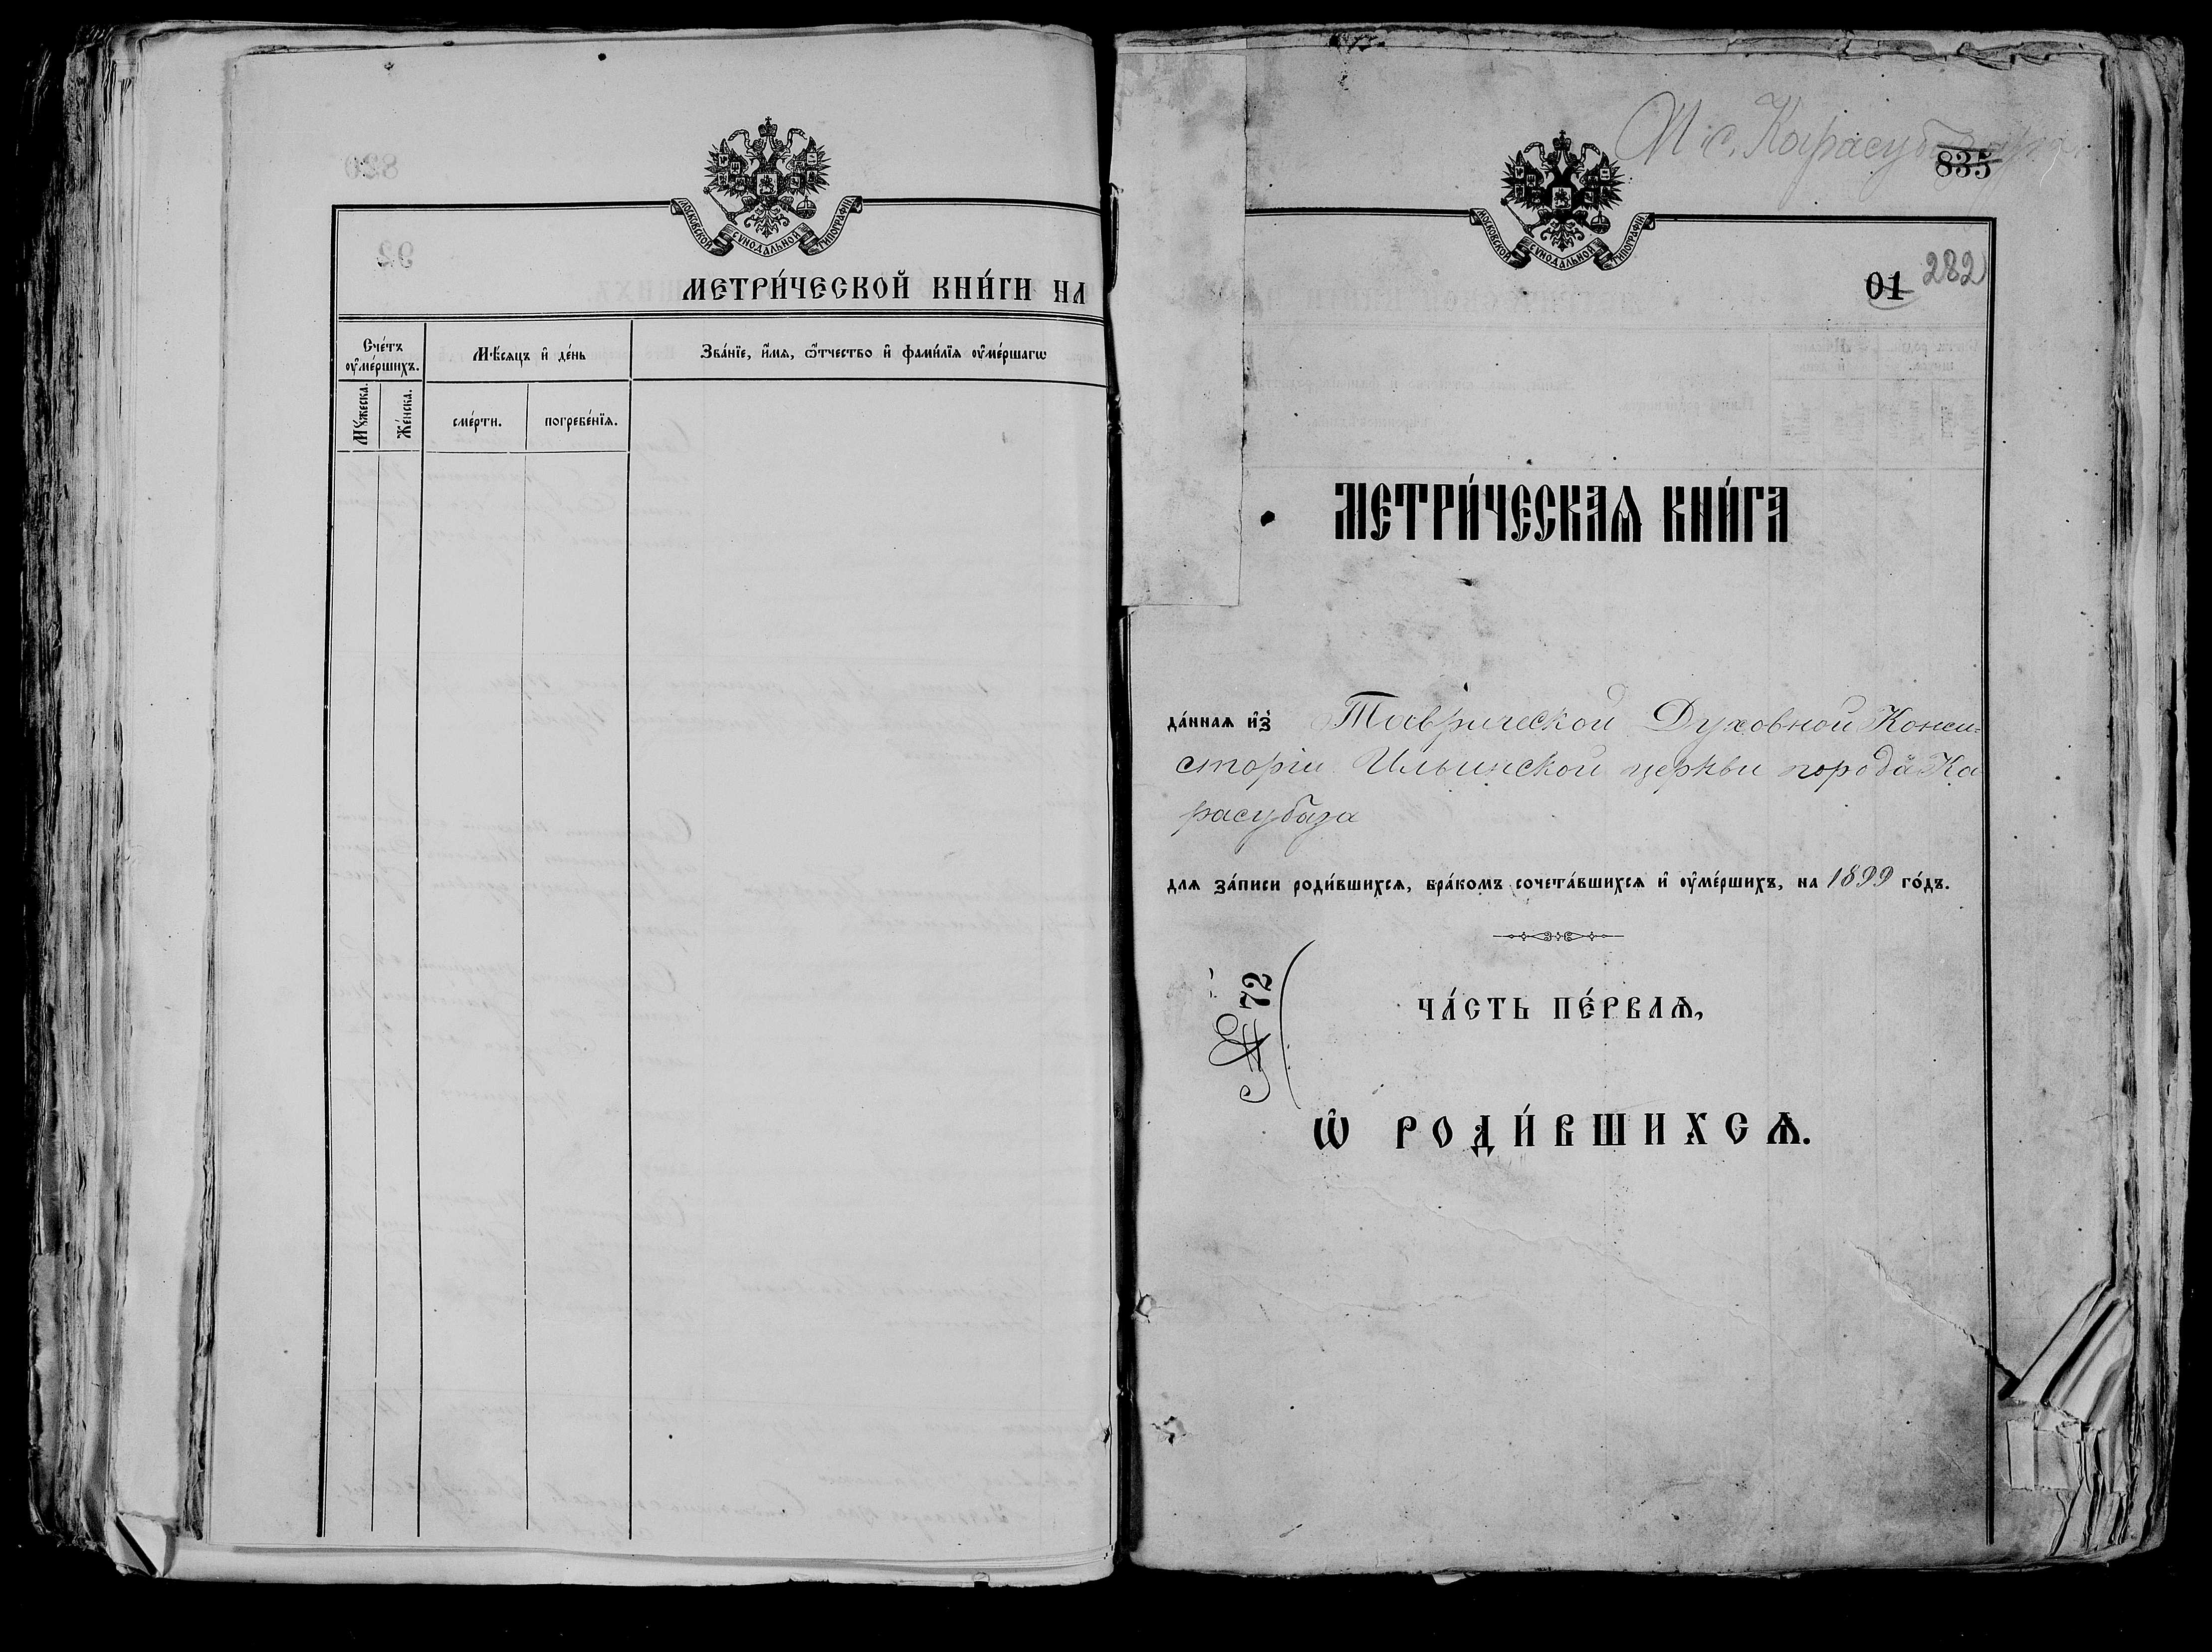 МОСКОВСКОЙ СѴНОДАЛЬНОЙ ТИПОГРАФІИ
МЕТРИ́ЧЕСКОЙ КНИ́ГИ НА
Сче́тъ ᲂу҆ме́ршихъ.
Мѣ́сяцъ и҆ де́нь
Зва́нїе, и҆́мѧ, ѻ҆́тчество и҆ фами́лїѧ ᲂу҆ме́ршагѡ
Мꙋ́жеска.
Же́нска.
сме́рти.
погребе́нїѧ.
И с. Карасубазара
835
МОСКОВСКОЙ СѴНОДАЛЬНОЙ ТИПОГРАФІИ
01 282
МЕТРИ́ЧЕСКАѦ КНИ́ГА
да́ннаѧ и҆з̾ Таврической Духовной Конси-
сторіи Ильинской церкви города Ка
расубаза
длѧ за́писи роди́вшихсѧ, бра́комъ сочета́вшихсѧ и҆ ᲂу҆ме́ршихъ, на 1899 го́дъ.
№ 72
ЧА́СТЬ ПЕ́РВАѦ,
Ѡ҆ РОДИ́ВШИХСѦ.